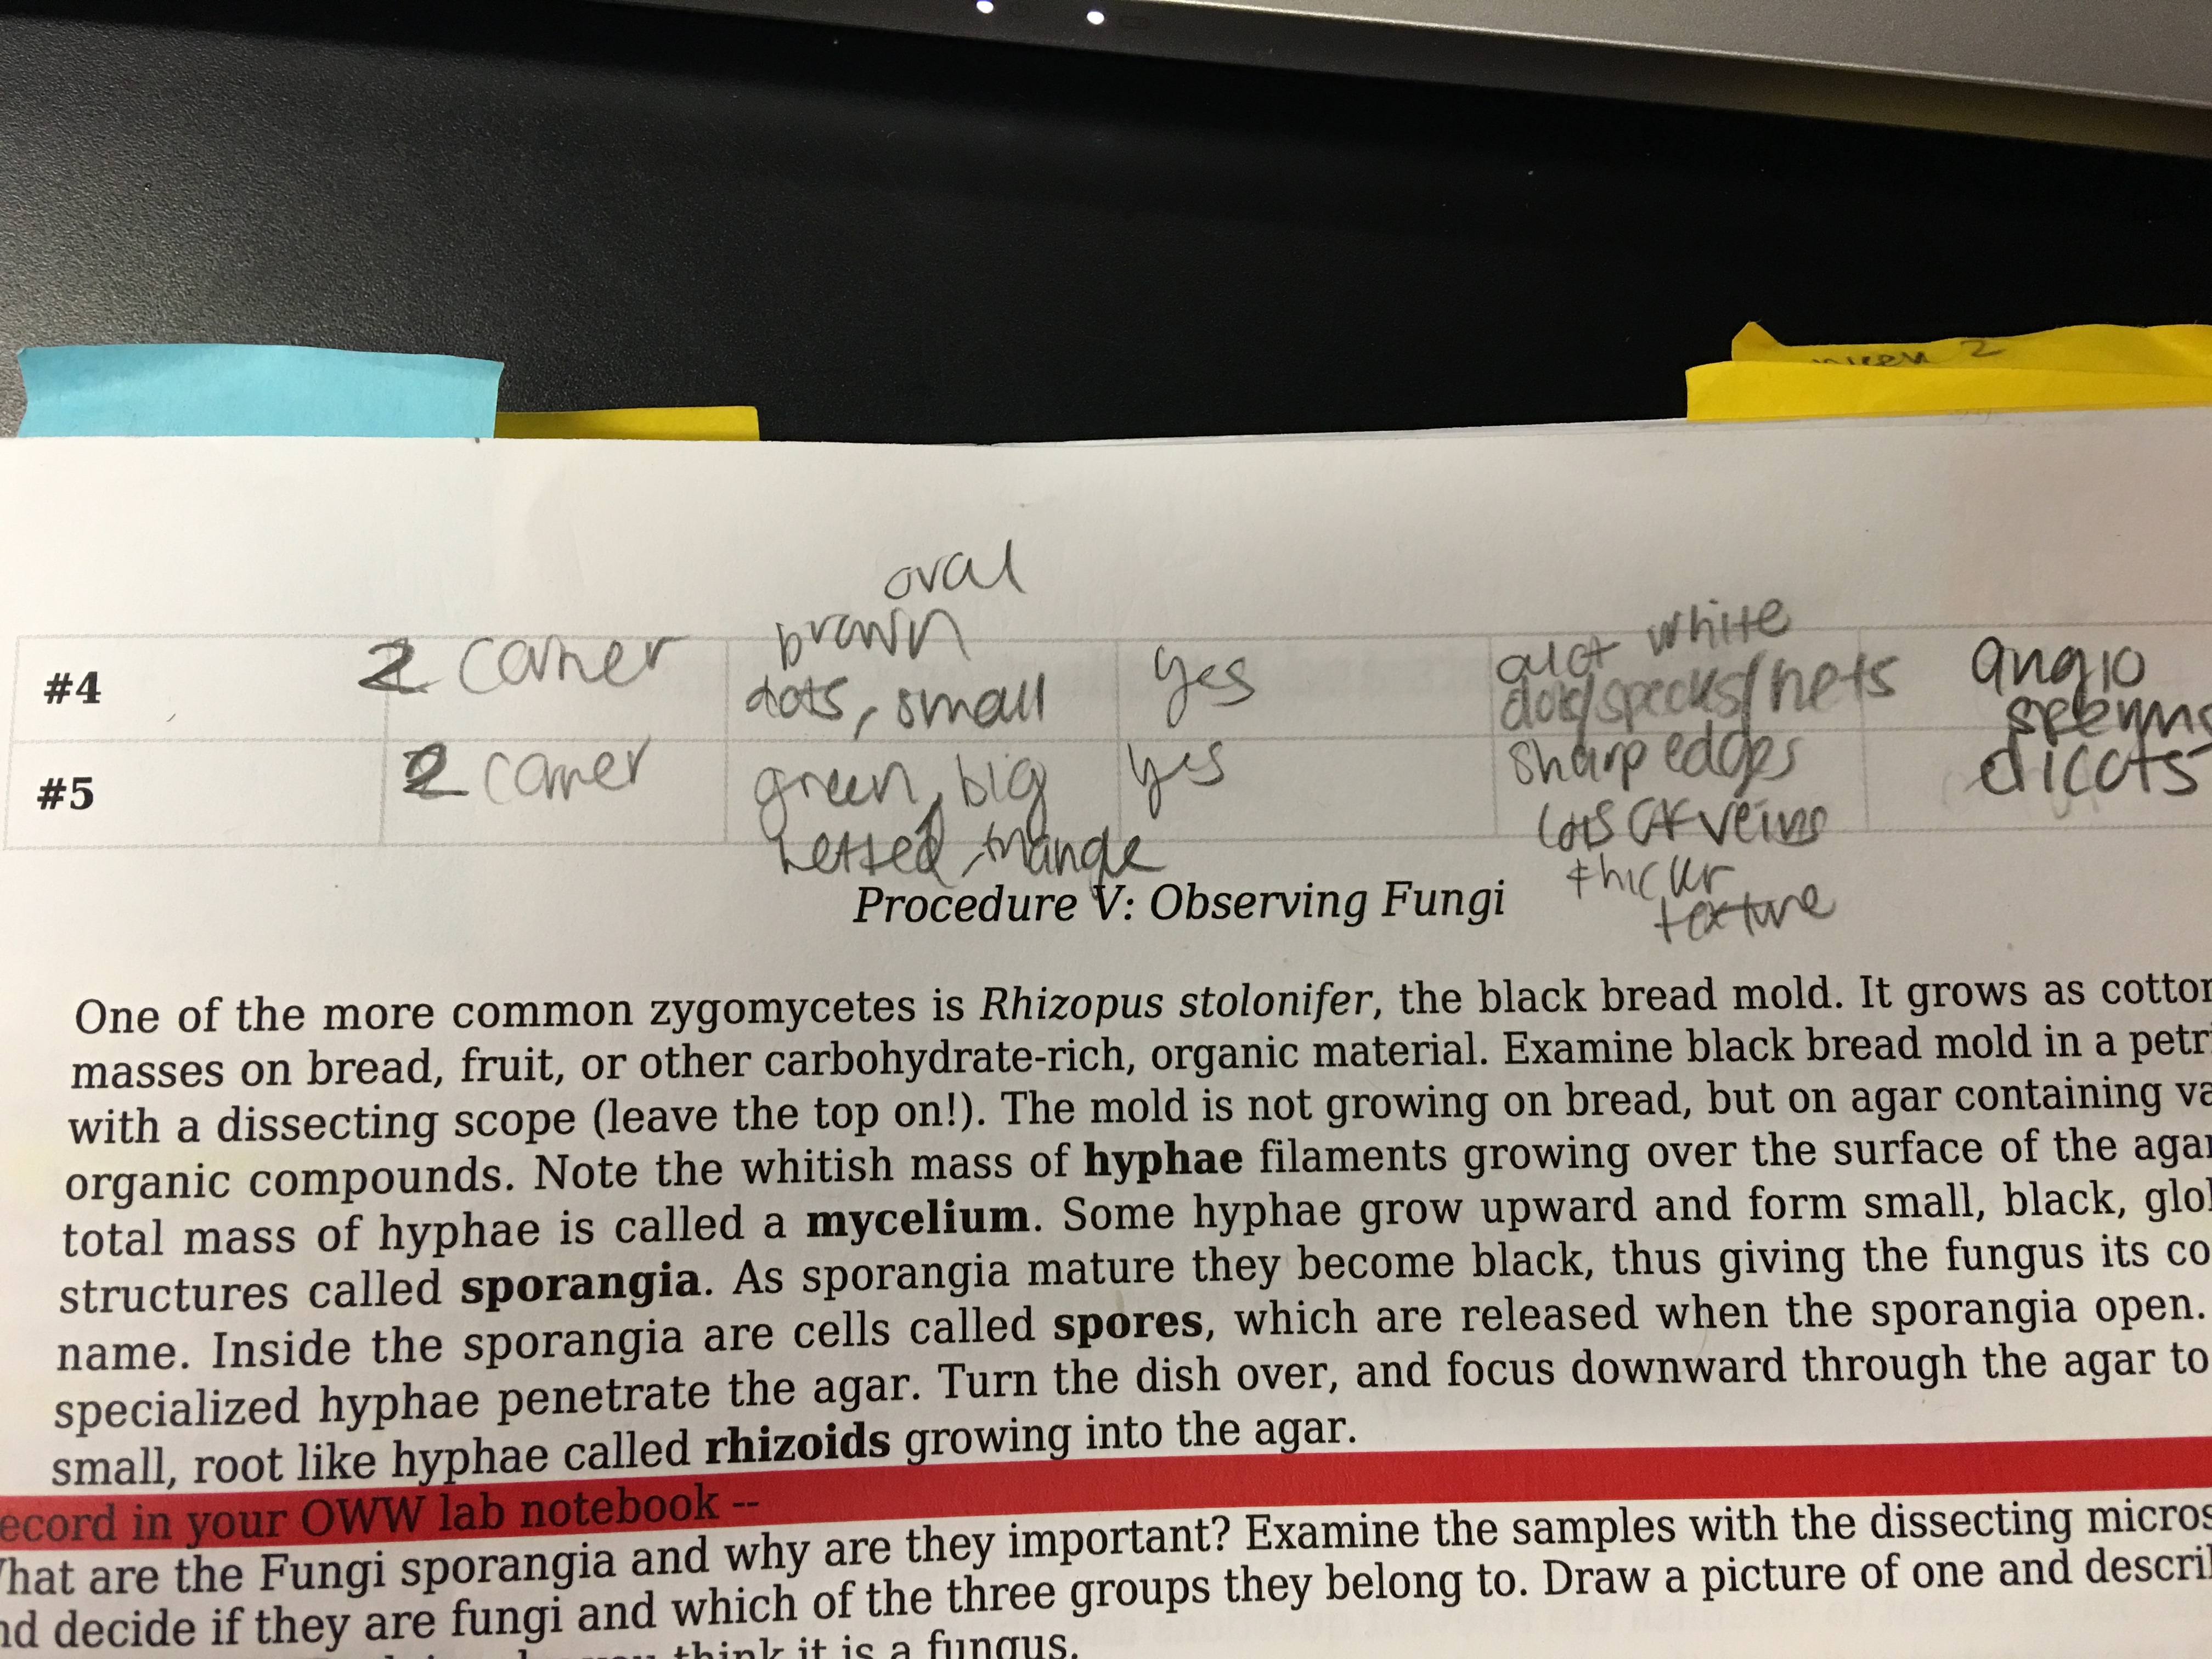 2
oval
brown
#4 2 corner dots, small yes alot white dots/specks/nets angio sperms
#5 2 corner green, big netted, triangle yes sharp edges lots of veins thicker texture dicots
Procedure V: Observing Fungi
One of the more common zygomycetes is Rhizopus stolonifer, the black bread mold. It grows as cotton
masses on bread, fruit, or other carbohydrate-rich, organic material. Examine black bread mold in a petri
with a dissecting scope (leave the top on!). The mold is not growing on bread, but on agar containing va
organic compounds. Note the whitish mass of hyphae filaments growing over the surface of the agar
total mass of hyphae is called a mycelium. Some hyphae grow upward and form small, black, glob
structures called sporangia. As sporangia mature they become black, thus giving the fungus its co
name. Inside the sporangia are cells called spores, which are released when the sporangia open.
specialized hyphae penetrate the agar. Turn the dish over, and focus downward through the agar to
small, root like hyphae called rhizoids growing into the agar.
ecord in your OWW lab notebook --
What are the Fungi sporangia and why are they important? Examine the samples with the dissecting micros
nd decide if they are fungi and which of the three groups they belong to. Draw a picture of one and descri
you think it is a fungus.